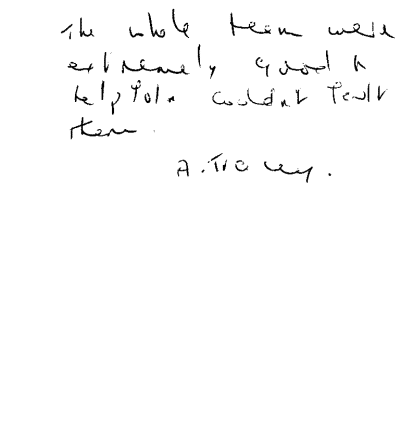 The whole team were
extremely good &
helpful. Couldn't fault
them.
A. Tracey.